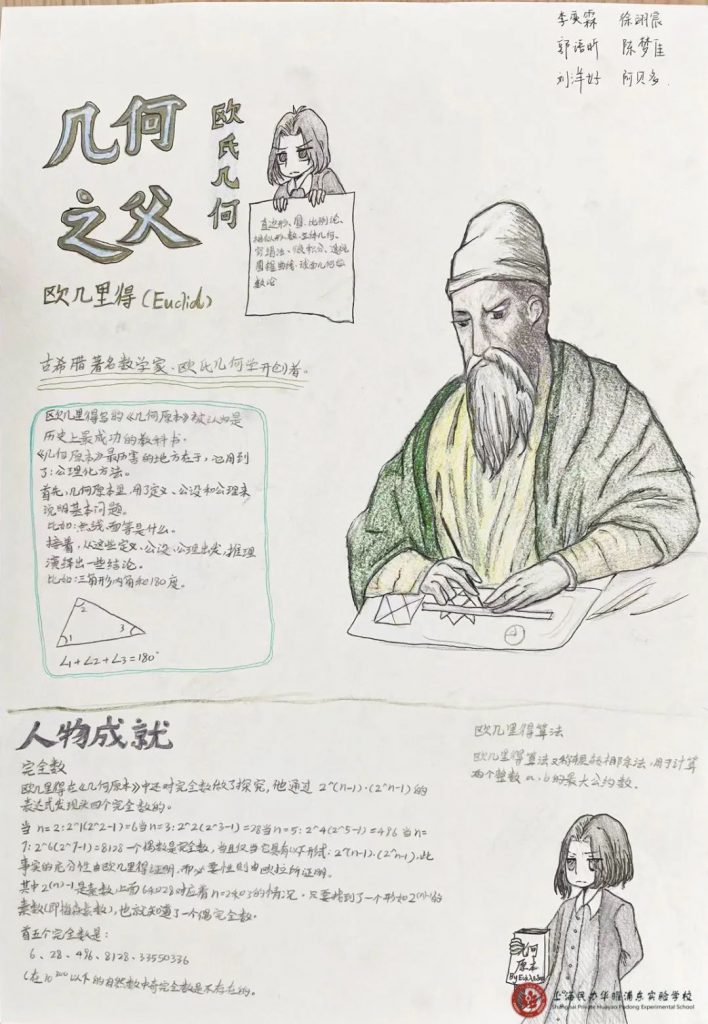 李 霖 徐 宸
郭语昕 陈梦佳
刘洋好 阿贝多
几何
之父
欧氏几何
欧几里得(Euclid)
直边形、圆、比例论、
相似形、数、立体几何、
穷竭法、微积分、
圆锥曲线、球面几何
数论
古希腊著名数学家、欧氏几何学开创者。
欧几里得写的《几何原本》被认为是
历史上最成功的教科书.
《几何原本》最厉害的地方在于,它用到
了:公理化方法。
首先,几何原本里,用了定义、公设和公理来
说明基本问题。
比如:点线面等是什么。
接着,从这些定义、公设、公理出发,推理
演绎出一些结论。
比如:三角形内角和180度。
2
1 3
∠1+∠2+∠3=180°
人物成就
完全数
欧几里得在《几何原本》中还对完全数做了探究,他通过 2^(n-1)·(2^n-1)的
表达式发现头四个完全数的。
当 n=2:2^1(2^2-1)=6当n=3:2^2(2^3-1)=28当n=5:2^4(2^5-1)=496 当n=
7:2^6(2^7-1)=8128 一个偶数是完全数,当且仅当它具有以下形式:2^(n-1)·(2^n-1),此
事实的充分性由欧几里得证明,而必要性则由欧拉所证明。
其中2^(n)-1是素数,上面 对应着n= 的情况. 只要找到了一个形如2^(n)-1的
素数(即梅森素数),也就知道了一个偶完全数.
首五个完全数是:
6、28、496、8128、33550336
(在10^300以下的自然数中奇完全数是不存在的。
欧几里得算法
欧几里得算法又称辗转相除法,用于计算
两个整数a,b的最大公约数.
几何
原本
By Euklid
上海民办华曜浦东实验学校
Shanghai Private Huayao Pudong Experimental School